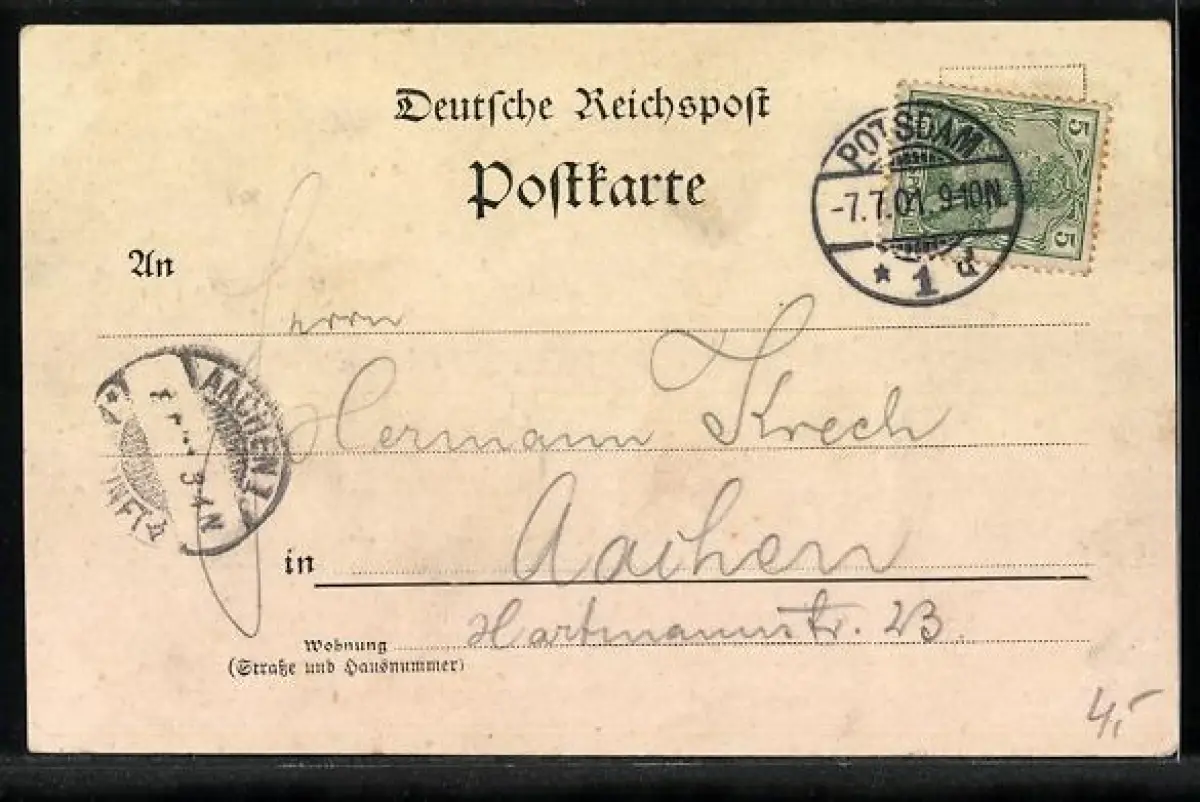 Deutsche Reichspost
Postkarte
POTSDAM
-7.7.01. 9-10N.
* 1 d
5
5
An
Herrn
Hermann Krech
AACHEN 1
3-4N
in Aachen
Hartmannstr. 23.
Wohnung
(Straße und Hausnummer)
4,-